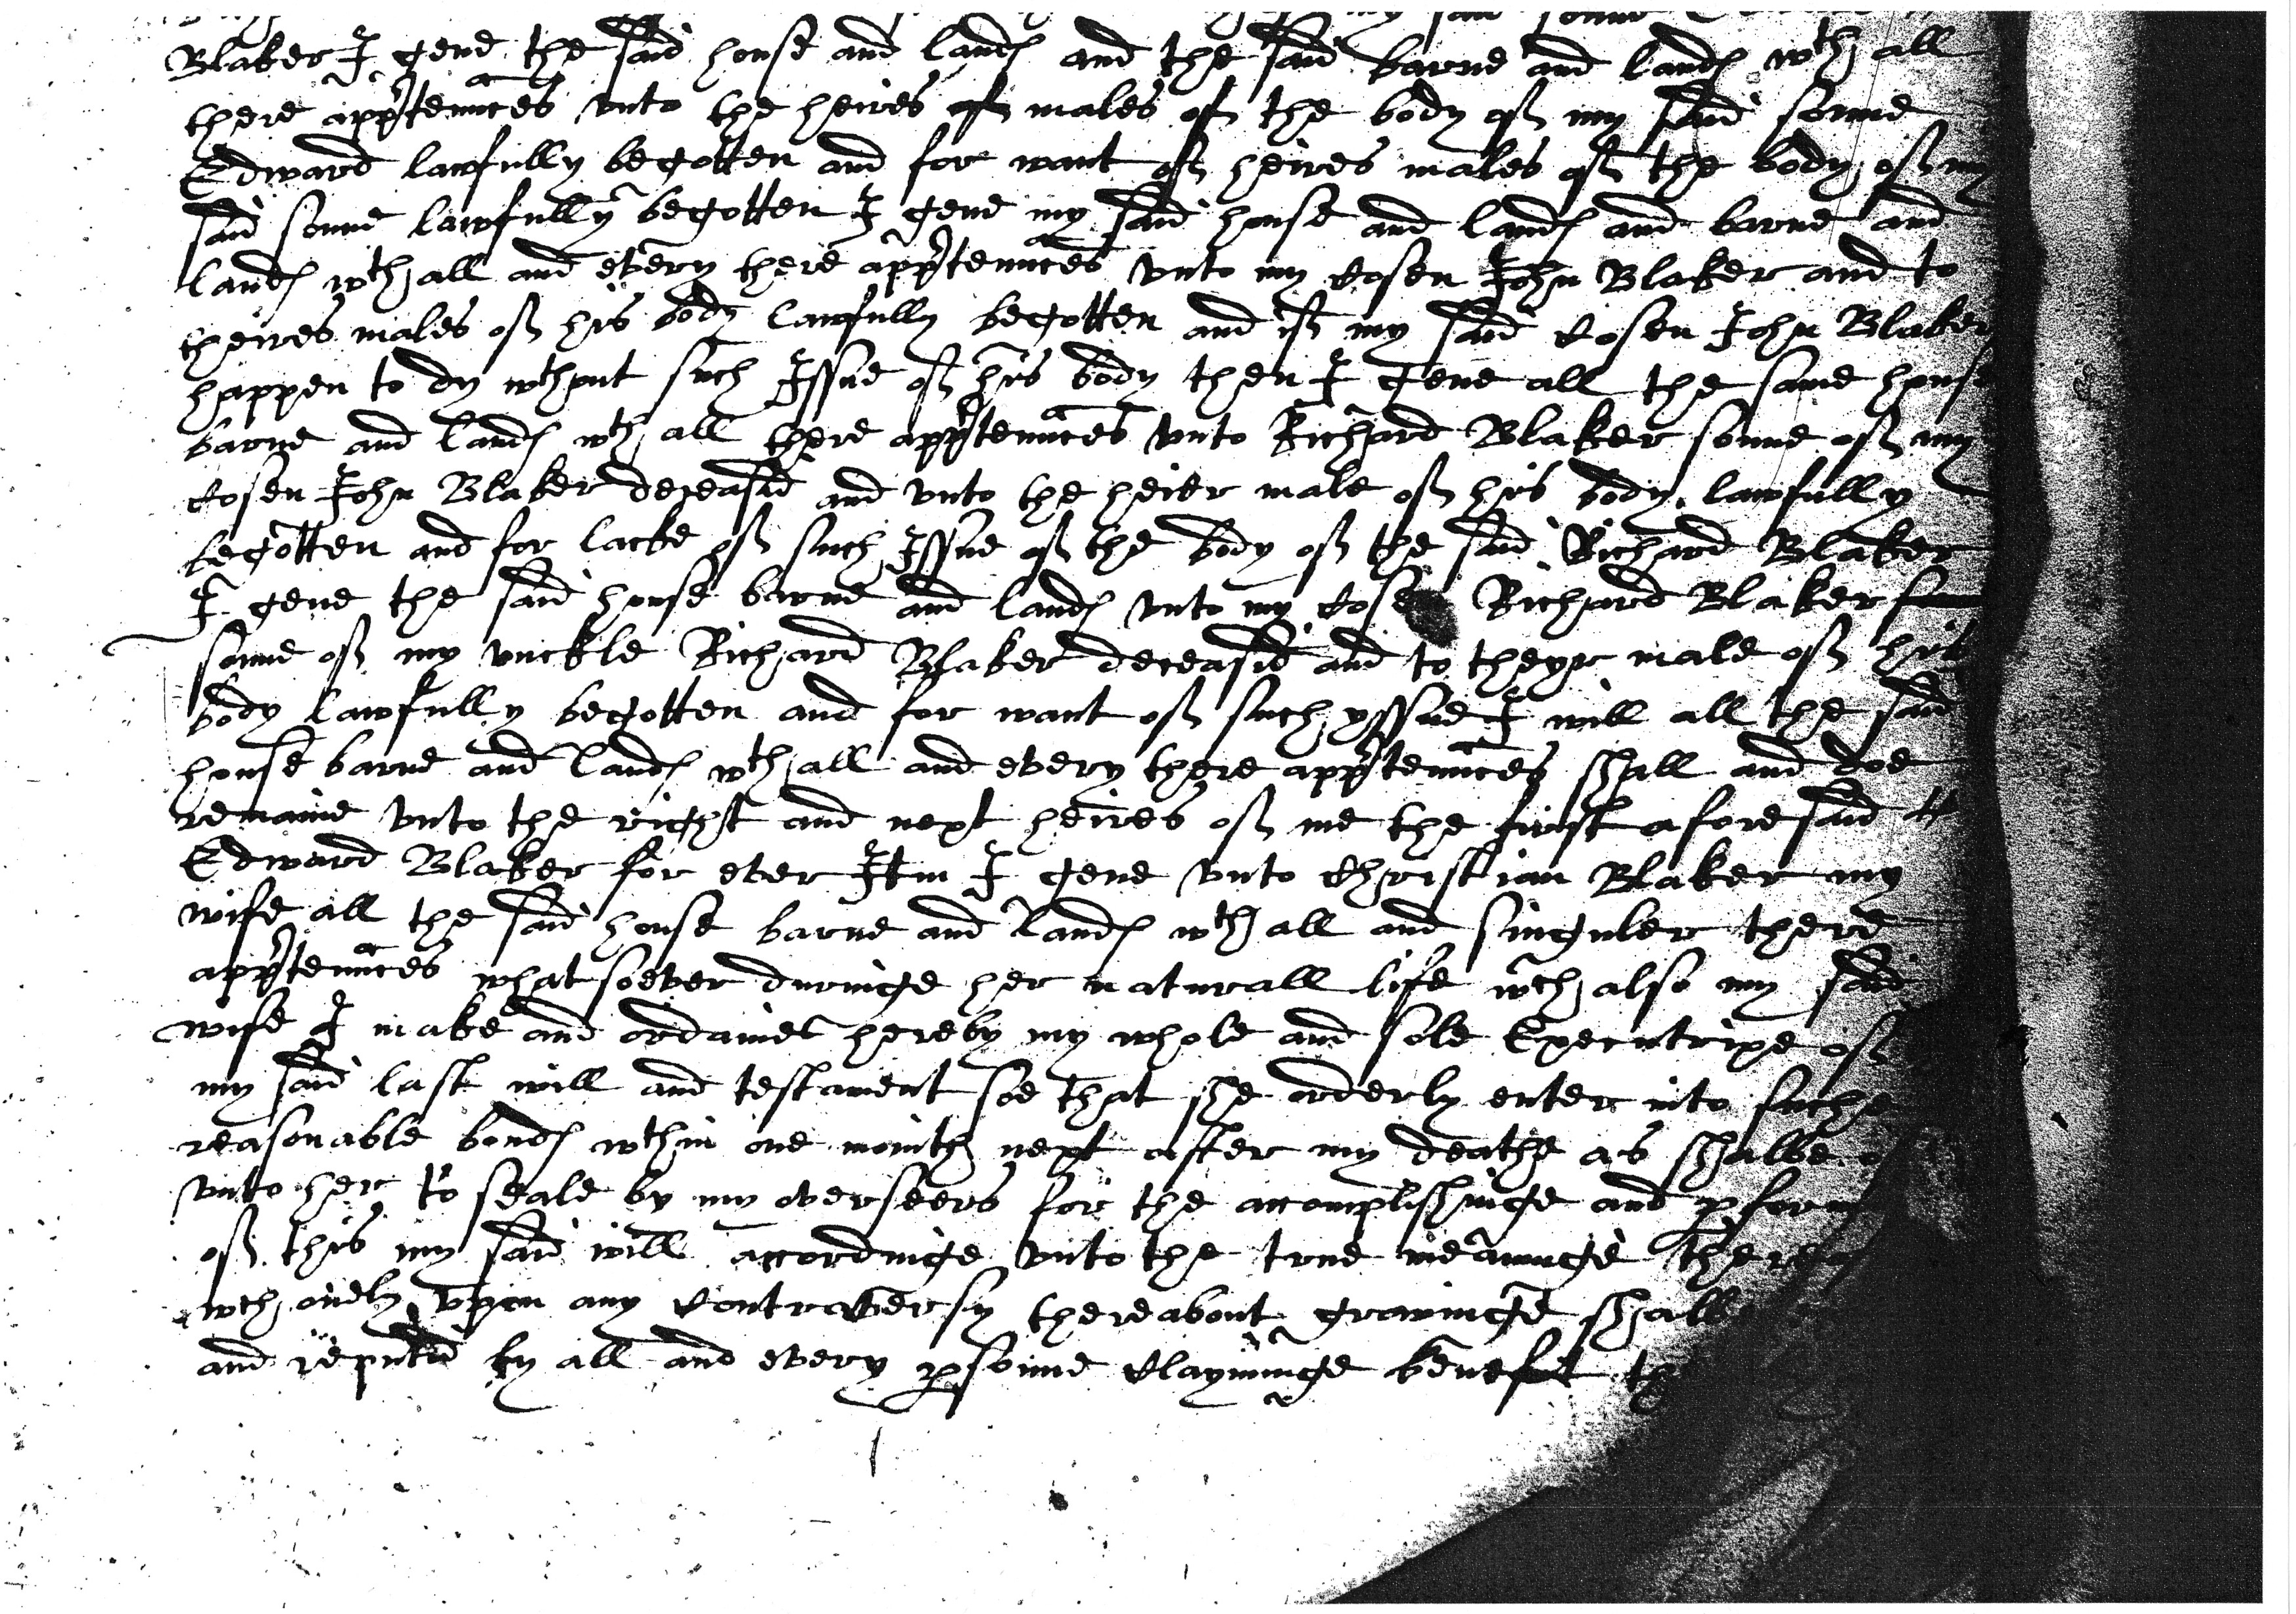 my said sonne
Blaker I geve the said house and lands and the said barne and lands wth all
there appŕtennces vnto the heires of males of the body of my said sonne
Edward lawfully begotten and for want of heires males of the body of my
said sonne lawfully begotten I geve my said house and lands and barne and
lands wth all and every there appŕtennces vnto my Cosen John Blaker and to
theires males of his body lawfully begotten and if my said Cosen John Blaker
happen to dy wthout such Issue of his body then I geve all the same house
barne and lands wth all there appŕtennces vnto Richard Blaker sonne of my
Cosen John Blaker deceased and vnto the heier male of his body lawfully
begotten and for lacke of such Issue of the body of the said Richard Blaker
I geve the said house barne and lands vnto my Cosen Richard Blaker
sonne of my vnckle Richard Blaker deceased and to theyr male of his
body lawfully begotten and for want of such yssue I will all the said
house barne and lands wth all and every there appŕtennces shall and doe
remaine vnto the right and next heires of me the first aforesaid
Edward Blaker for ever Itm I geve vnto Christian Blaker my
wife all the said house barne and lands wth all and singuler there
appŕtennces whatsoever duringe her naturall life wch also my said
wife I make and ordaine hereby my whole and sole Executrixe of
my said last will and testament soe that she orderly enter into suche
reasonable bonds wthin one mointh next after my deathe as shalbe
vnto her to seale by my overseers for the accomplishinge and
of this my said will accordinge vnto the true meaninge
wch onely vpon any Controversy thereabout growinge
and reputed by all and every psonne Clayminge benefit